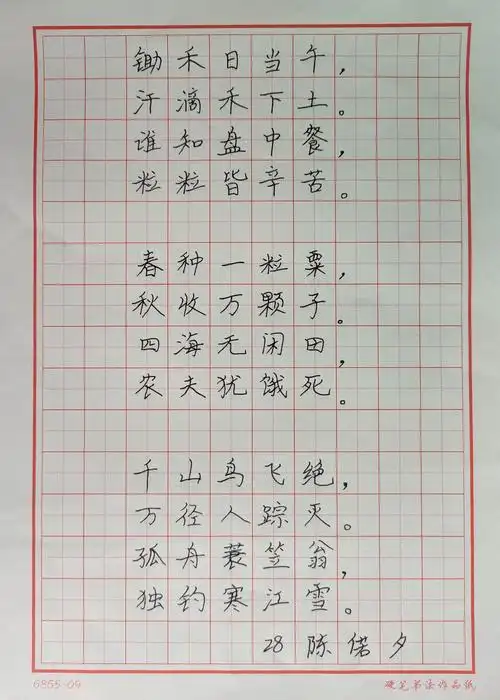 锄禾日当午,
汗滴禾下土。
谁知盘中餐,
粒粒皆辛苦。
春种一粒粟,
秋收万颗子。
四海无闲田,
农夫犹饿死。
千山鸟飞绝,
万径人踪灭。
孤舟蓑笠翁,
独钓寒江雪。
28 陈偌夕
6855-09 硬笔书法作品纸